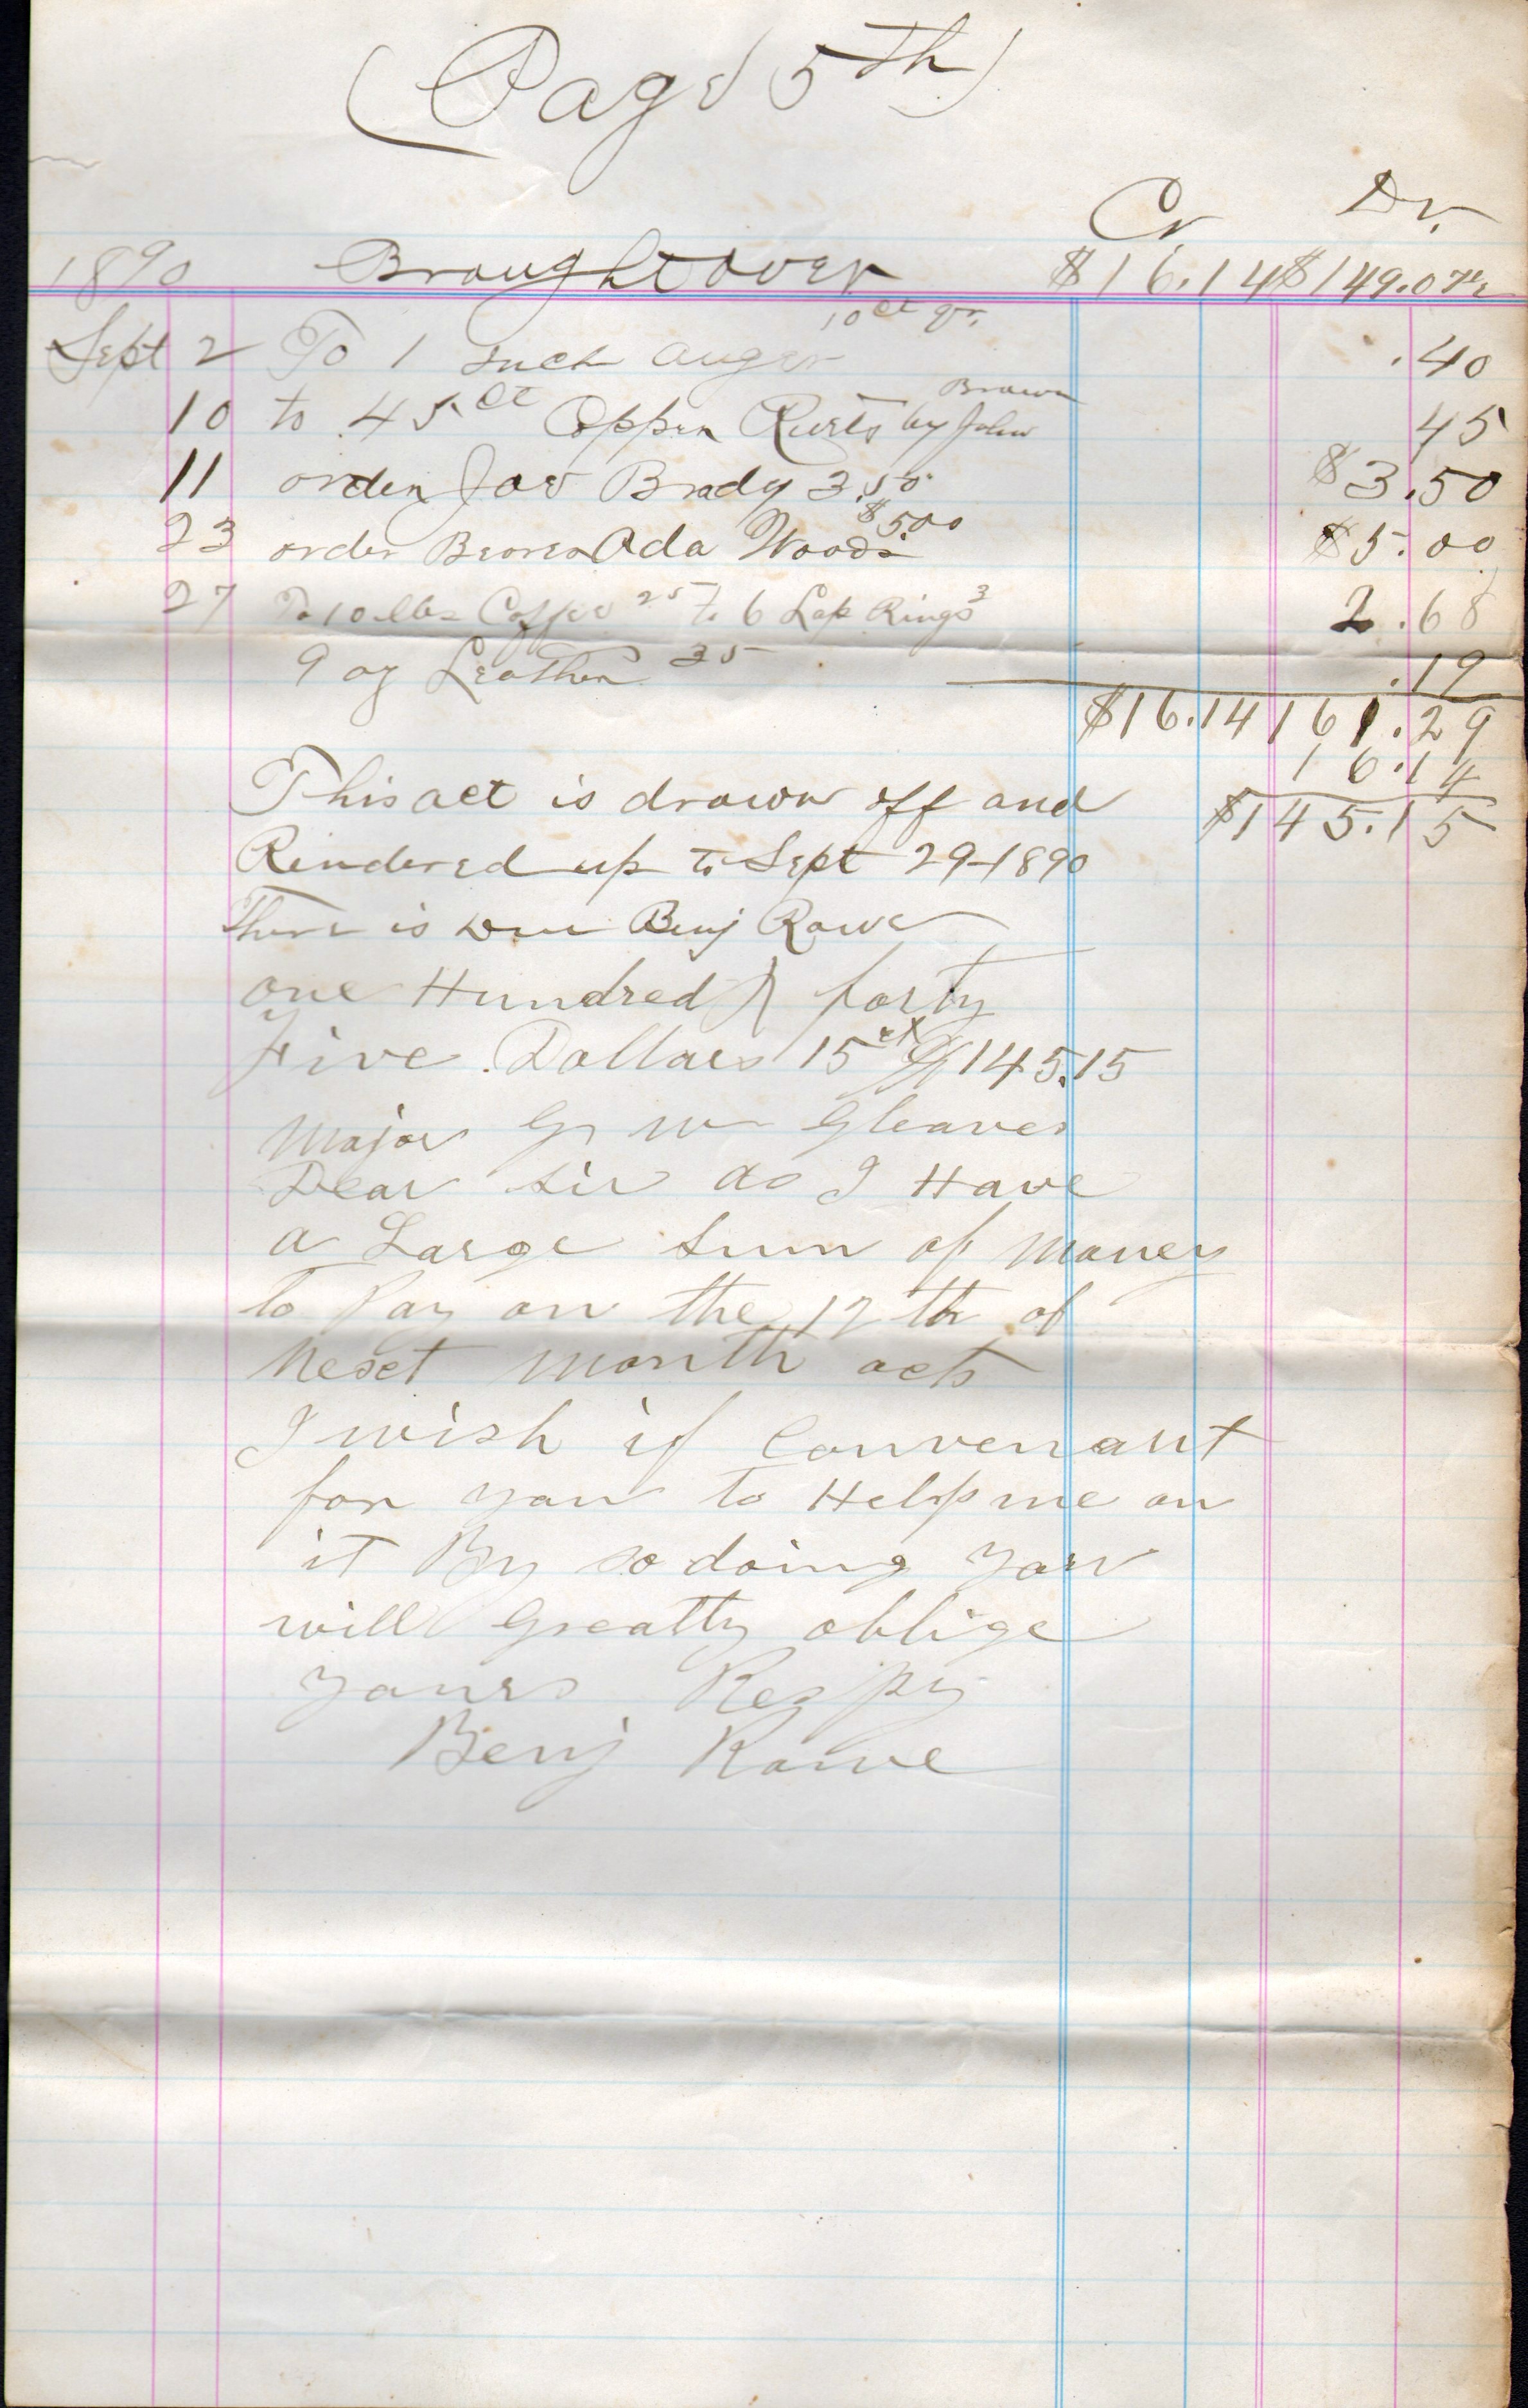 (Page 5th)
Cr Dr.
1890 Brought over $16.14 $149.07½
10 ct qr.
Sept 2 To 1 inch auger .40
Brown
10 to 45 ct Copper Rivets by John 45
11 order for Brady 3.50 $3.50
$5.00
23 order Ada Woods $5.00
27 To 10 lbs Coffee 25 to 6 Lap Rings 3 2.68
9 oz Leather 35 .19
$16.14 161.29
16.14
This act is drawn off and $145.15
Rendered up to Sept 29-1890
There is Due Benj Rowe
one Hundred & forty
Five Dollars 15 ct $145.15
Major G W Gleaves
Dear Sir as I Have
a Large Sum of Money
to Pay on the 17th of
Next month octs
I wish if Convenant
for you to Help me on
it By so doing you
will Greatly oblige
Yours Respy
Benj Rowe